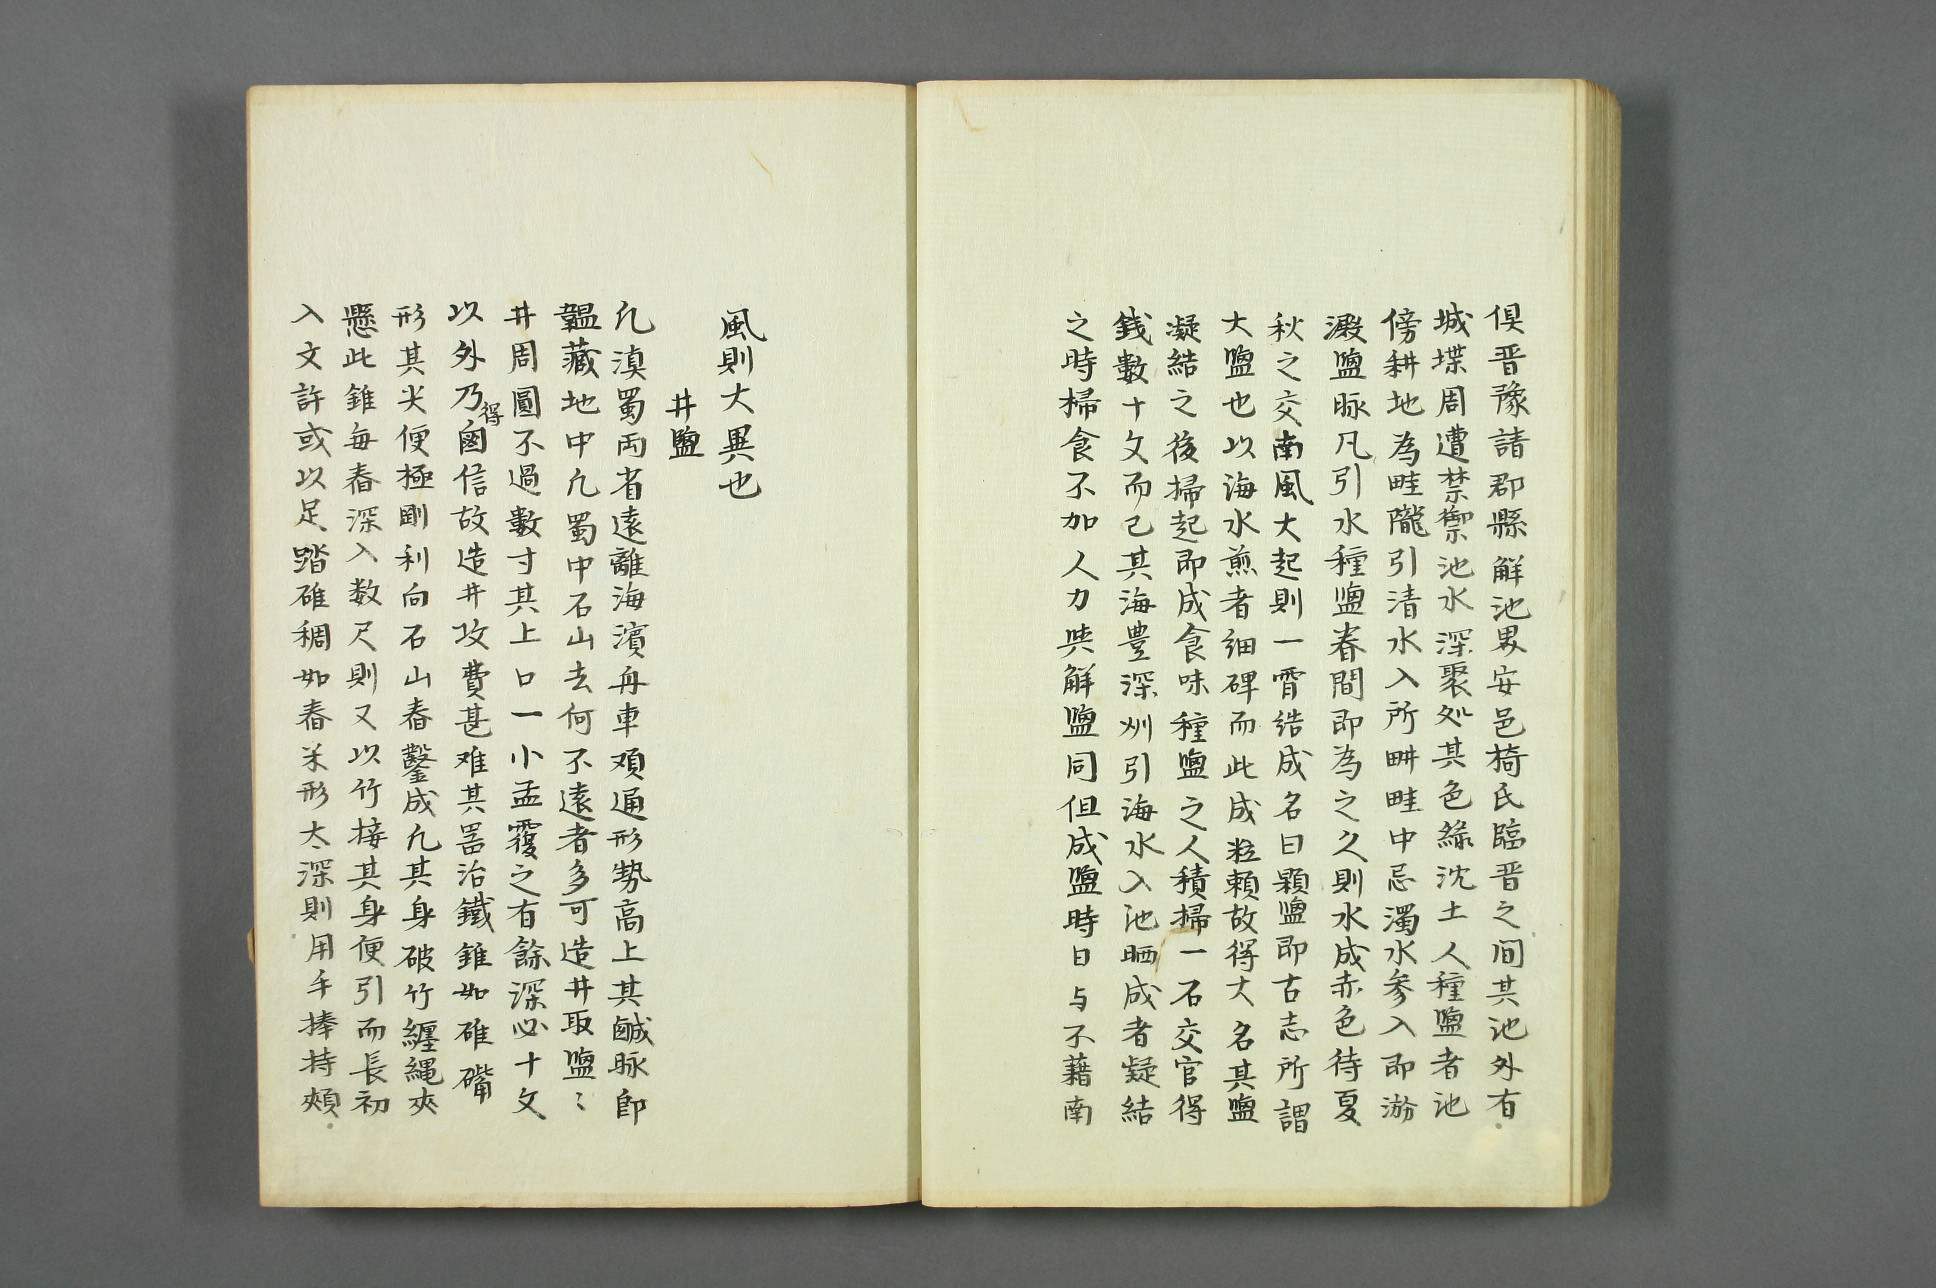 俱晋豫諸郡縣解池界安邑椅氏臨晋之间其池外有
城堞周遭禁禦池水深聚処其色綠沈土人種鹽者池
傍耕地為畦隴引清水入所畊畦中忌濁水参入即淤
澱鹽脉凡引水種鹽春間即為之久則水成赤色待夏
秋之交南風大起則一霄结成名曰顆鹽即古志所謂
大鹽也以海水煎者细碑而此成粒頼故得大名其鹽
凝結之後掃起即成食味種鹽之人積掃一石交官得
錢數十文而已其海豊深州引海水入池晒成者凝結
之時掃食不加人力與解鹽同但成鹽時日与不藉南
風則大異也
井鹽
凢滇蜀両省遠離海濱舟車艱通形勢高上其鹹脉即
韞藏地中凢蜀中石山去何不遠者多可造井取鹽〻
井周圓不過數寸其上口一小盂覆之有餘深必十丈
以外乃得鹵信故造井攻費甚难其噐治鐵錐如碓嘴
形其尖便極剛利向石山舂鑿成凢其身破竹纒縄夾
懸此錐每舂深入数尺則又以竹接其身便引而長初
入文許或以足踏碓稠如舂米形太深則用手捧持頰